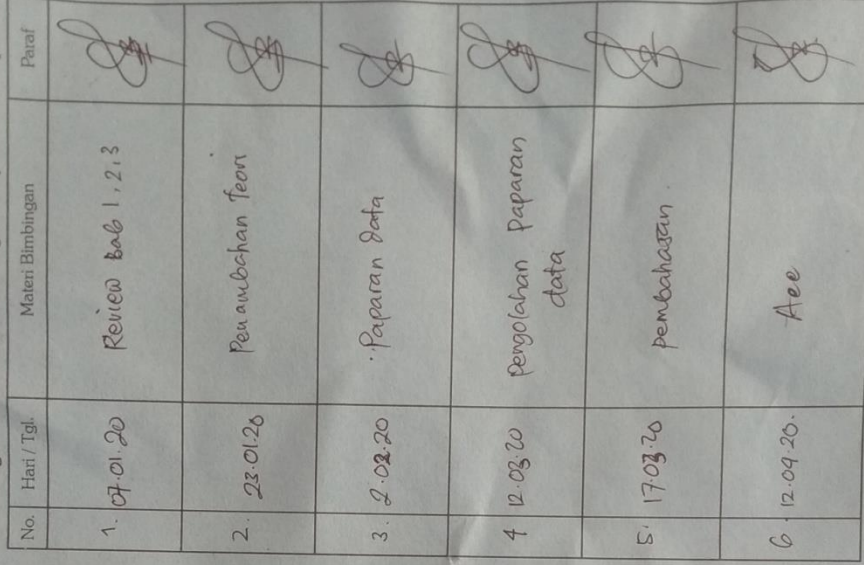 No. Hari / Tgl. Materi Bimbingan Paraf
1. 07.01.20 Review bab 1, 2, 3
2. 23.01.20 Penambahan teori
3. 2.03.20 Paparan data
4 12.03.20 pengolahan paparan
data
5. 17.03.20 pembahasan.
6. 12.04.20. Acc